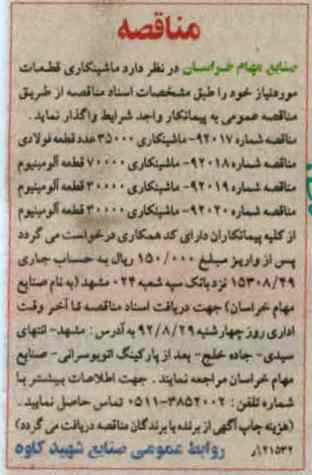 مناقصه
صنایع مهام خراسان در نظر دارد ماشینکاری قطعات
موردنیاز خود را طبق مشخصات اسناد مناقصه از طریق
مناقصه عمومی به پیمانکار واجد شرایط واگذار نماید .
مناقصه شماره ۹۲۰۱۷- ماشینکاری ۳۵۰۰۰ عدد قطعه فولادی
مناقصه شماره ۹۲۰۱۸- ماشینکاری ۷۰۰۰۰ قطعه آلومینیوم
مناقصه شماره ۹۲۰۱۹- ماشینکاری ۳۰۰۰۰ قطعه آلومینیوم
مناقصه شماره ۹۲۰۲۰- ماشینکاری ۳۰۰۰۰ قطعه آلومینیوم
از کلیه پیمانکاران دارای کد همکاری درخواست می گردد
پس از واریز مبلغ ۱۵۰/۰۰۰ ریال به حساب جاری
۱۵۳۰۸/۴۹ نزد بانک سپه شعبه ۲۴۰ مشهد (به نام صنایع
مهام خراسان) جهت دریافت اسناد مناقصه تا آخر وقت
اداری روز چهارشنبه ۹۲/۸/۲۹ به آدرس : مشهد- انتهای
سیدی- جاده خلج- بعد از پارکینگ اتوبوسرانی- صنایع
مهام خراسان مراجعه نمایند . جهت اطلاعات بیشتر با
شماره تلفن : ۳۸۵۲۰۰۲-۰۵۱۱ تماس حاصل نمایید .
(هزینه چاپ آگهی از برنده یا برندگان مناقصه دریافت می گردد)
۲۱۵۳۲/ر روابط عمومی صنایع شهید کاوه